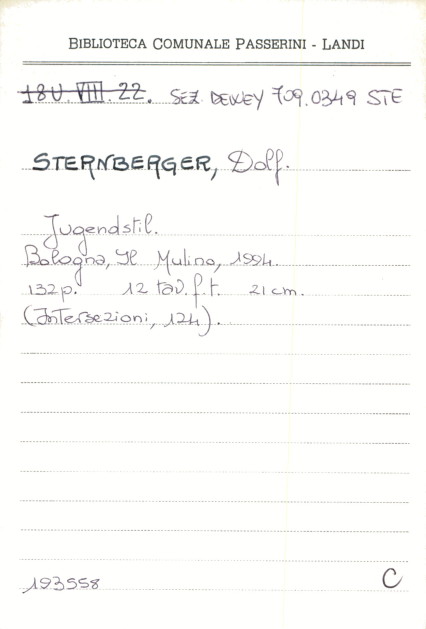 BIBLIOTECA COMUNALE PASSERINI - LANDI
18U.VIII.22. SEZ. DEWEY 709.0349 STE
STERNBERGER, Dolf.
Jugendstil.
Bologna, Il Mulino, 1994.
132 p. 12 tav. f. t. 21 cm.
(Intersezioni, 124).
193558 C